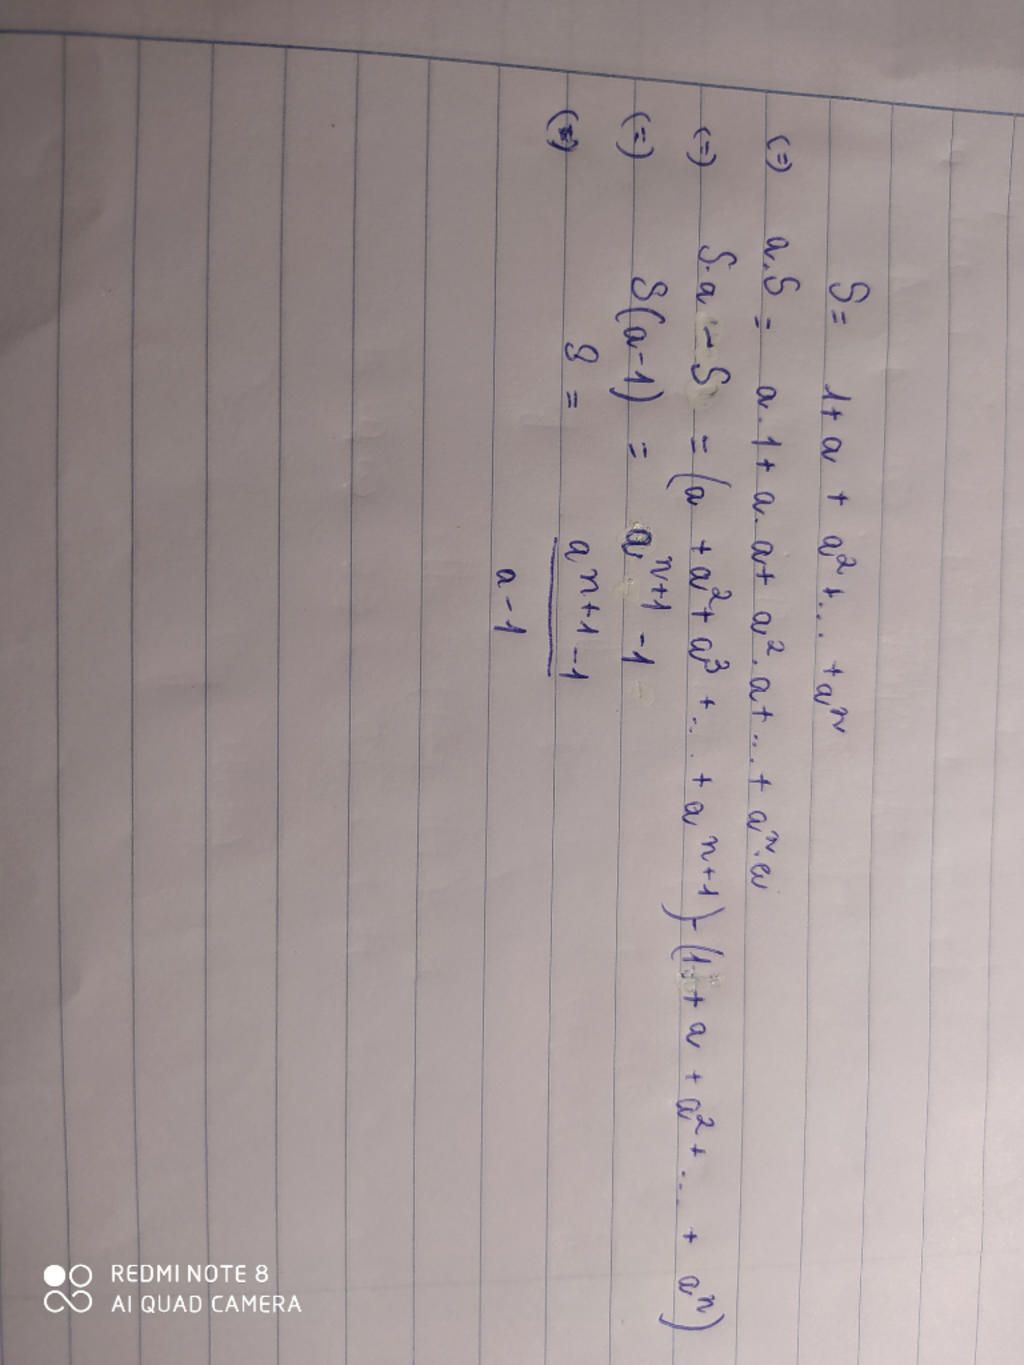 S = 1 + a + a² + ... + aⁿ
(=) a.S = a.1 + a.a + a².a + ... + aⁿ.a
(=) S.a - S = (a + a² + a³ + ... + aⁿ⁺¹) - (1 + a + a² + ... + aⁿ)
(=) S(a-1) = aⁿ⁺¹ - 1
(=) S = aⁿ⁺¹ - 1
a - 1
REDMI NOTE 8
AI QUAD CAMERA